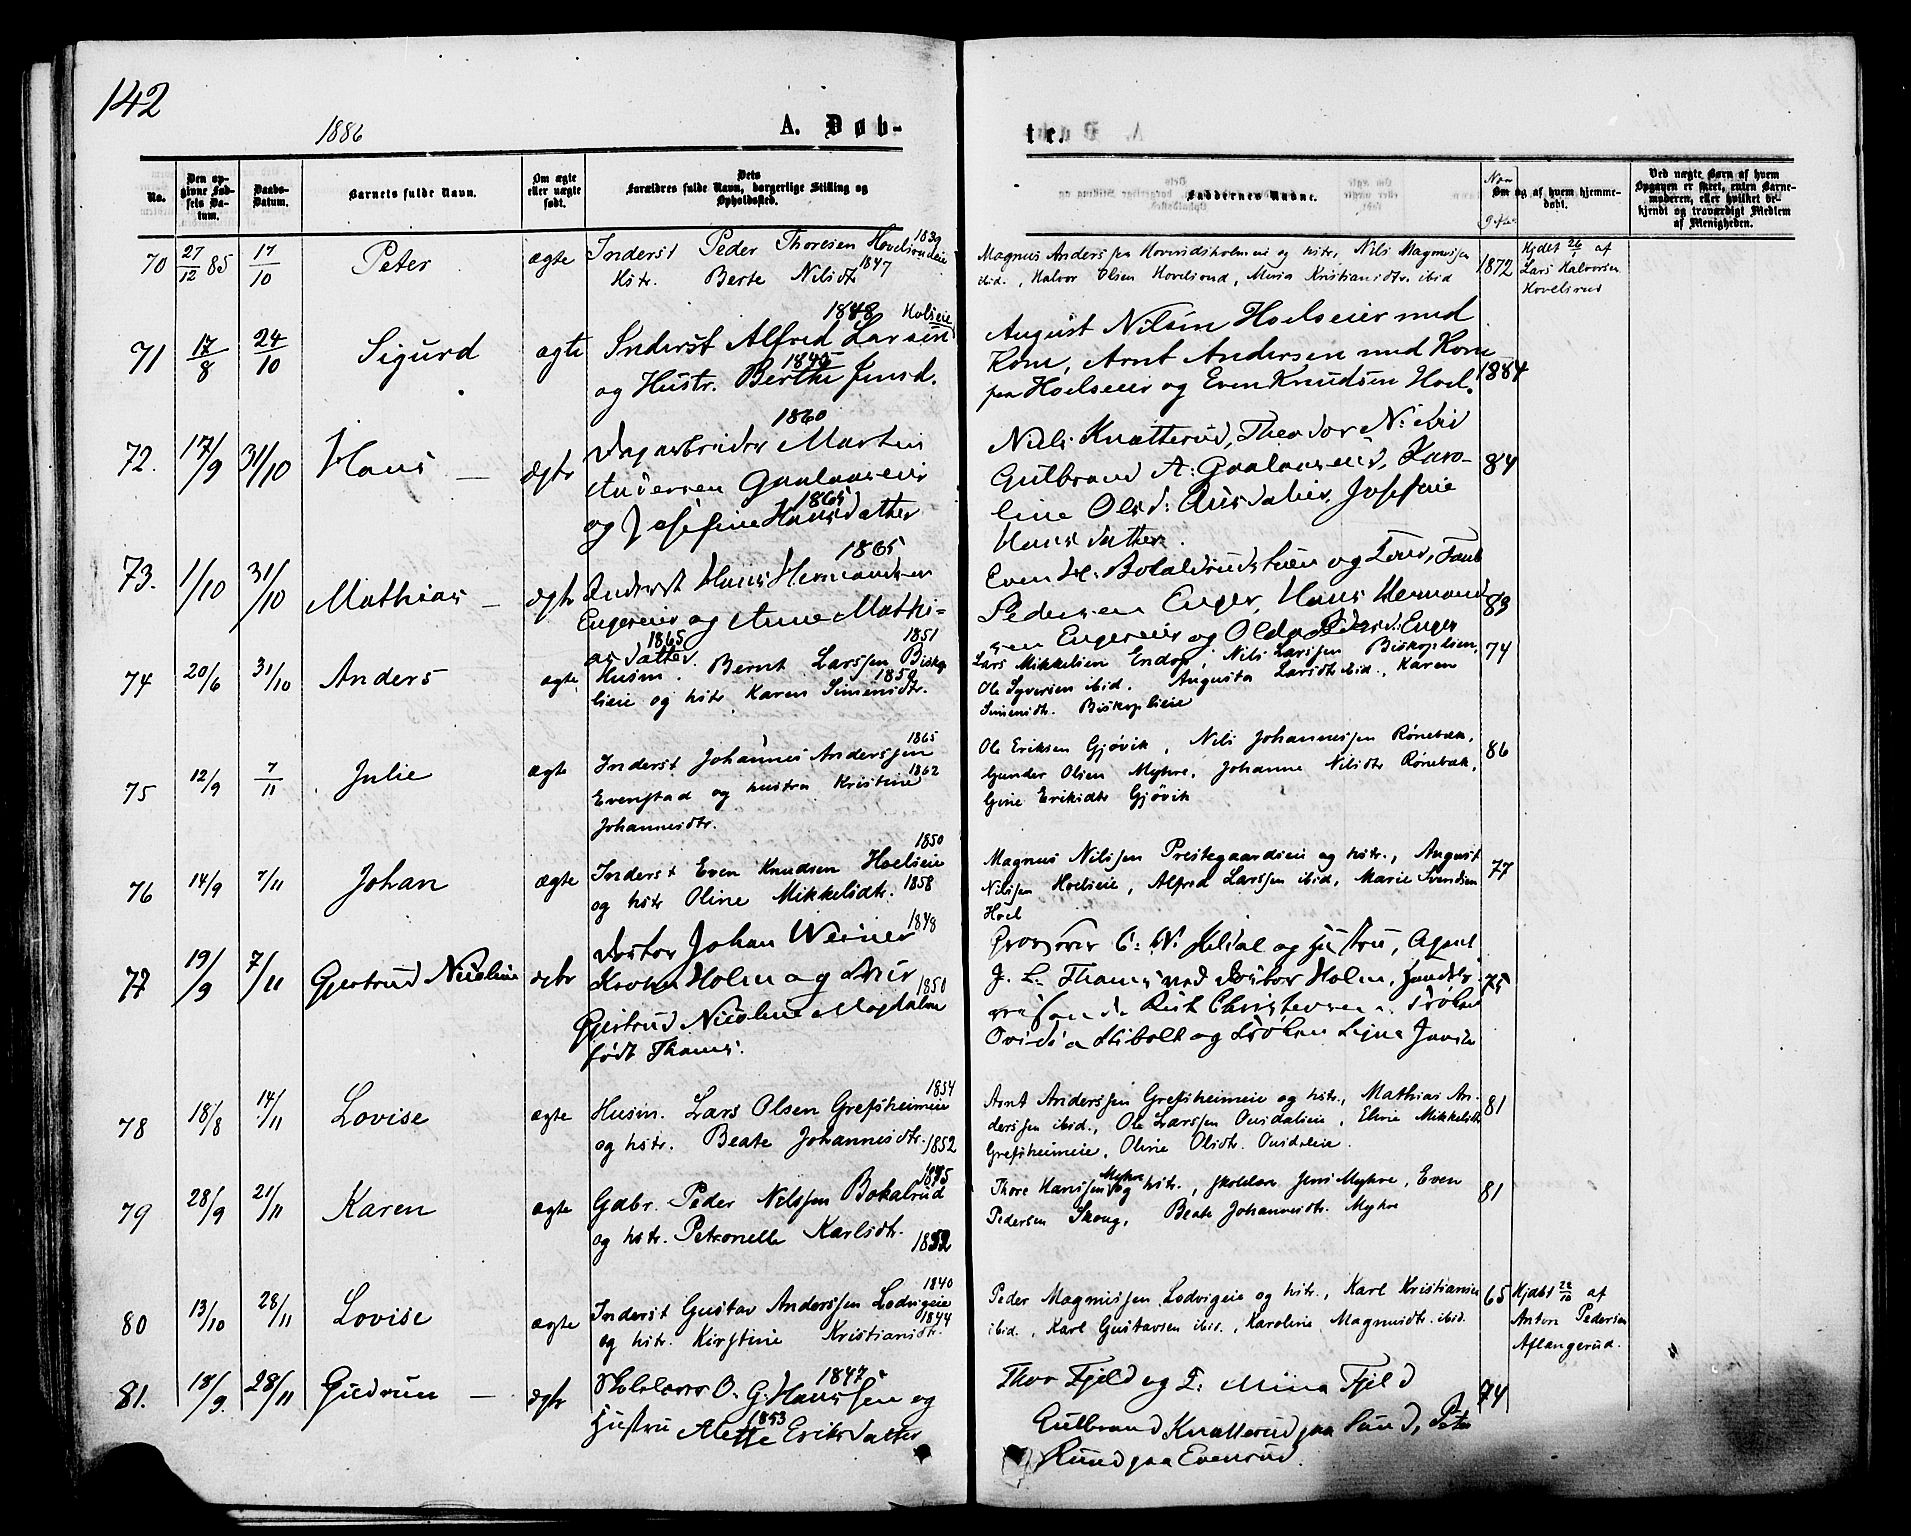 142
1886
A. Døb-
ter.
No.
Den opgivne Fødsels Datum.
Daabs-Datum.
Barnets fulde Navn.
Om ægte eller uægte født.
Dets Forældres fulde Navn, borgerlige Stilling og Opholdssted.
Faddernes Navne.
Naar gifte
Om og af hvem hjemmedøbt.
Ved uægte Børn af hvem Opgaven er skeet, enten Barnemoderen, eller hvilket bekjendt og troværdigt Medlem af Menigheden.
70 27/12 85 17/10 Peter ægte
Inderst Peder Thoresen Hovelsrudeie 1839
Hstr. Berte Nilsdtr 1847
Magnus Anderssen og hstr, Nils Magnussen
ibid., Halvor Olsen Hovelsrud, Maria Kristiansdtr. ibid
1872
Hjdøt 26/1 af
Lars Halvorsen
Hovelsrud
71 17/8 24/10 Sigurd ægte
1848 Holseie
Inderst Alfred Larsen
1845
og Hustr. Berthe Jensd.
August Nilsen Hoelseier med
Kone, Arnt Andersen med Kone
paa Hoelseier og Even Knudsen Hoel.
1884
72. 17/9 31/10 Hans — ægte
1860
Dagarbeider Martin
Andersen Gaalaaseier
1865
og Josefine Hansdatter
Niels Knatterud, Theodor ibid
Gulbrand A: Gaalaaseie, Karo-
line Olsd: Josefine
Hansdatter.
84
73. 1/10 31/10 Mathias — ægte
1865
Inderst Hans Hermansen
Engereier og Anne Mathi-
1865
asdatter.
Even H: Bolaldrudstuen og
Pedersen Enger, Hans Herman-
sen Engereier og Enger
83
74 20/6 31/10 Anders ægte
1851
Husm. Bernt Larssen Biskop-
1850
lieie og hstr. Karen Simensdtr.
Lars Mikkelsen Endop, Nils Larssen Biskoplieie,
Ole Syversen ibid. Augusta Larsdtr ibid., Karen
Simensdtr. Biskoplieie
74
75 12/9 7/11 Julie ægte
1865
Inderst Johannes Anderssen
Evenstad og hustru Kristine 1862
Johannesdtr.
Ole Eriksen Gjøvik, Nils Johannessen Rønebæk,
Gunder Olsen Myhre, Johanne Nilsdtr Rønebæk,
Gine Eriksdtr Gjøvik
86
76 14/9 7/11 Johan ægte
1850
Inderst Even Knudsen Hoelseie
og hstr Oline Mikkelsdtr. 1858
Magnus Nilssen Prestegaardseie og hstr., August
Nilssen Hoelseie, Alfred Larssen ibid, Marie Svendsen
Hoel
77
77 19/9 7/11 Gjertrud Nicoline ægte
Doktor Johan Werner 1848
Krohn Holm og Fru
1850
Gjertrud Nicoline Magdalene
født Thams.
og Hustru, Agent
J. L. Thams med Doktor Holm,
Christensen, Frøken
Ovidia Stibolt og Frøken Signe
75
78 18/8 14/11 Lovise ægte
1854
Husm. Lars Olsen Grefsheimeie
og hstr. Beate Johannesdtr. 1852
Arnt Anderssen Grefsheimeie og hstr., Mathias An-
derssen ibid., Ole Larssen Ousdaleie, Eline Mikkelsdtr
Grefsheimeie, Oline Olsdtr. Ousdaleie.
81
79 28/9 21/11 Karen ægte
1845
Gdbr. Peder Nilssen Bokalrud
og hstr. Petronelle Karlsdtr. 1852
Thore Hanssen Myhre og hstr., skolelærer Jens Myhre, Even
Pedersen Skoug, Beate Johannesdtr. Myhre
81
80 13/10 28/11 Lovise ægte
1840
Inderst Gustav Anderssen Lodvigeie
1844
og hstr. Kirstine Kristiansdtr.
Peder Magnussen Lodvigeie og hstr., Karl Kristiansen
ibid., Karl Gustavsen ibid., Karoline Magnusdtr. ibid.
65
Hjdøbt 22/10 af
Anton Pedersen
Aflangerud.
81. 18/9. 28/11 Gudrun — ægte
1847
Skolelærer O. G. Hanssen og
1853
Hustru Alette Eriksdatter
Thor Fjeld og F: Mina Fjeld
Gulbrand Knatterud paa Sund, Peter
Rund paa Evensrud.
74